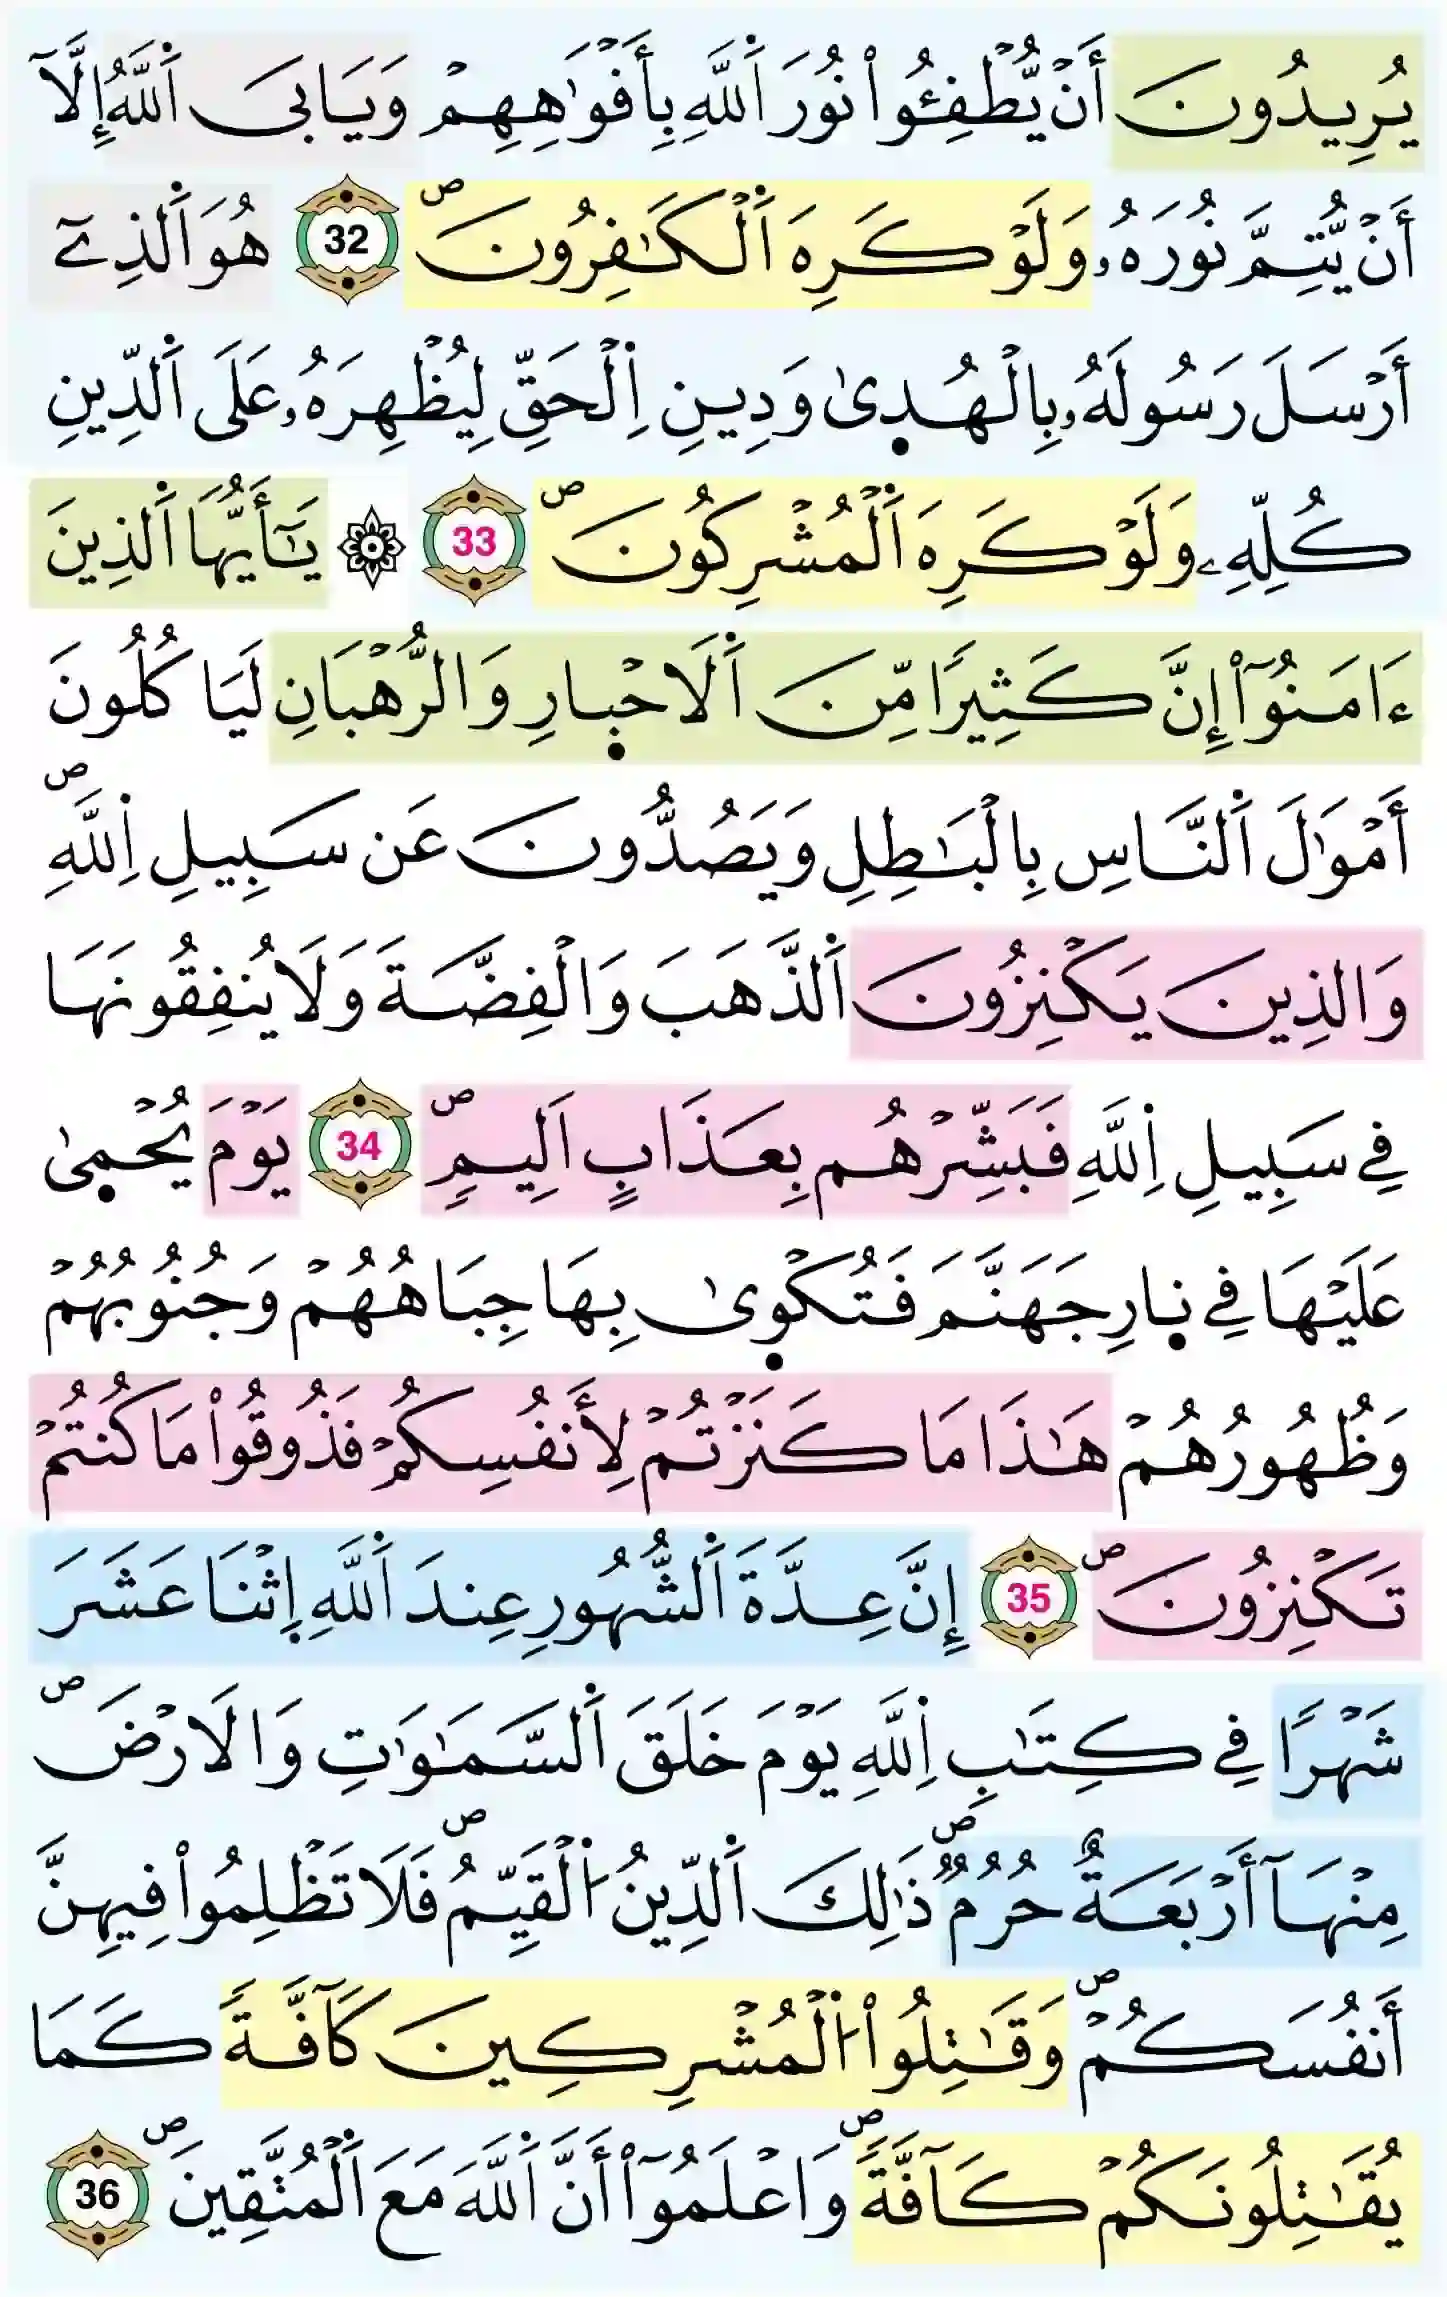 يُرِيدُونَ أَنْ يُّطْفِـُٔواْ نُورَ اَ۬للَّهِ بِأَفْوَٰهِهِمْ وَيَابَي اَ۬للَّهُ إِلَّآ
أَنْ يُّتِمَّ نُورَهُۥ وَلَوْ كَرِهَ اَ۬لْكَٰفِرُونَۖ 32 هُوَ اَ۬لذِےٓ
أَرْسَلَ رَسُولَهُۥ بِالْهُد۪يٰ وَدِينِ اِ۬لْحَقِّ لِيُظْهِرَهُۥ عَلَي اَ۬لدِّينِ
كُلِّهِۦ وَلَوْ كَرِهَ اَ۬لْمُشْرِكُونَۖ 33 ۞ يَٰٓأَيُّهَا اَ۬لذِينَ
ءَامَنُوٓاْ إِنَّ كَثِيرًا مِّنَ اَ۬لَاحْب۪ارِ وَالرُّهْبَانِ لَيَاكُلُونَ
أَمْوَٰلَ اَ۬لنَّاسِ بِالْبَٰطِلِ وَيَصُدُّونَ عَن سَبِيلِ اِ۬للَّهِۖ
وَالذِينَ يَكْنِزُونَ اَ۬لذَّهَبَ وَالْفِضَّةَ وَلَا يُنفِقُونَهَا
فِے سَبِيلِ اِ۬للَّهِ فَبَشِّرْهُم بِعَذَابٍ اَلِيمٍۖ 34 يَوْمَ يُحْم۪يٰ
عَلَيْهَا فِے ن۪ارِ جَهَنَّمَ فَتُكْو۪يٰ بِهَا جِبَاهُهُمْ وَجُنُوبُهُمْ
وَظُهُورُهُمْ هَٰذَا مَا كَنَزْتُمْ لِأَنفُسِكُمْ فَذُوقُواْ مَا كُنتُمْ
تَكْنِزُونَۖ 35 إِنَّ عِدَّةَ اَ۬لشُّهُورِ عِندَ اَ۬للَّهِ اِ۪ثْنَا عَشَرَ
شَهْرًا فِے كِتَٰبِ اِ۬للَّهِ يَوْمَ خَلَقَ اَ۬لسَّمَٰوَٰتِ وَالَارْضَۖ
مِنْهَآ أَرْبَعَةٌ حُرُمٌۖ ذَٰلِكَ اَ۬لدِّينُ اُ۬لْقَيِّمُۖ فَلَا تَظْلِمُواْ فِيهِنَّ
أَنفُسَكُمْۖ وَقَٰتِلُواْ اُ۬لْمُشْرِكِينَ كَآفَّةً كَمَا
يُقَٰتِلُونَكُمْ كَآفَّةًۖ وَاعْلَمُوٓاْ أَنَّ اَ۬للَّهَ مَعَ اَ۬لْمُتَّقِينَۖ 36